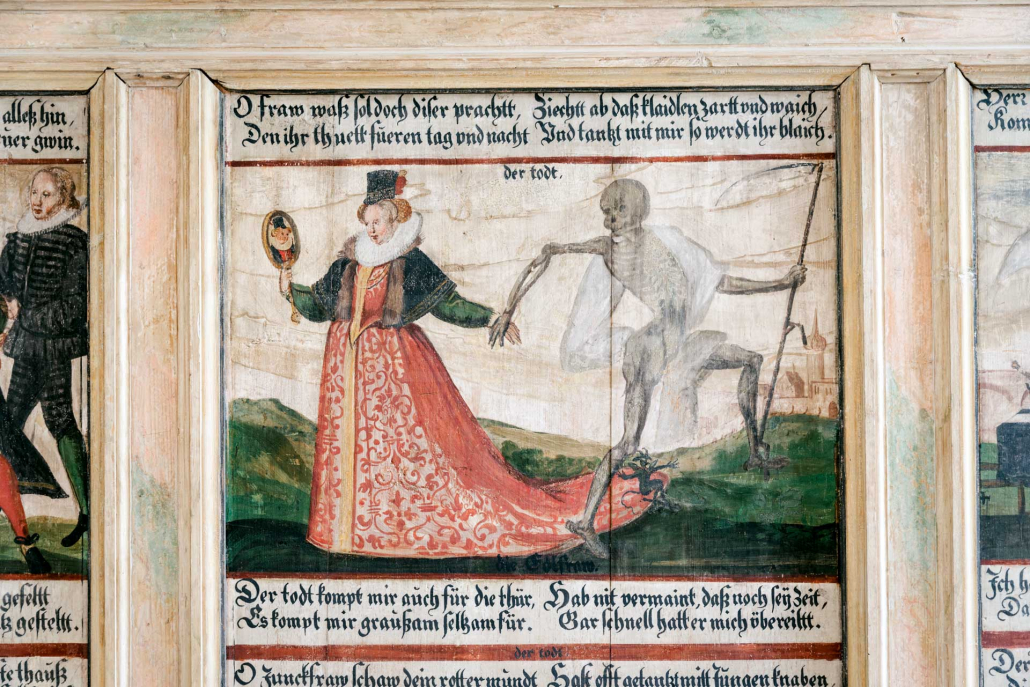 alleß hin,
gwin.
O fraw waß sol doch diser prachtt, Ziechtt ab daß klaidlen zartt vnd waich,
Den ihr thuett füeren tag vnd nacht Vnd tantzt mit mir so werdt ihr blaich.
der todt.
die Edlfraw.
Der todt kompt mir auch für die thür, Hab nit vermaint, daß noch seÿ Zeit,
Es kompt mir graußam seltzam für. Gar schnell hatt er mich öbereiltt.
der todt
O Junckfraw schaw dein rotter mundt Hast offt getantzt mitt Jungen knaben,
gefeltt
gesteltt.
Kom
Ich
Da